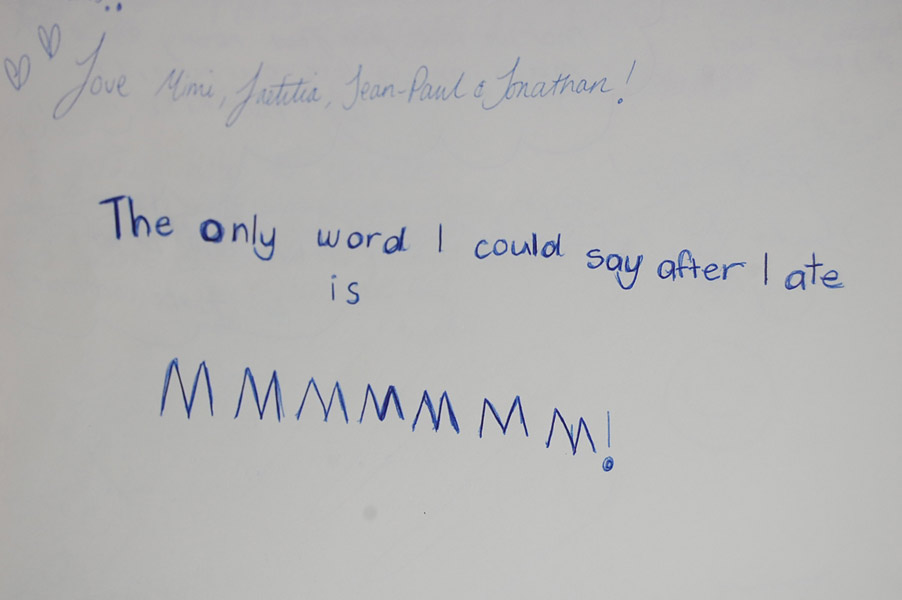 Love Mimi, Laetitia, Jean-Paul & Jonathan!
The only word I could say after I ate
is
MMMMMMM!